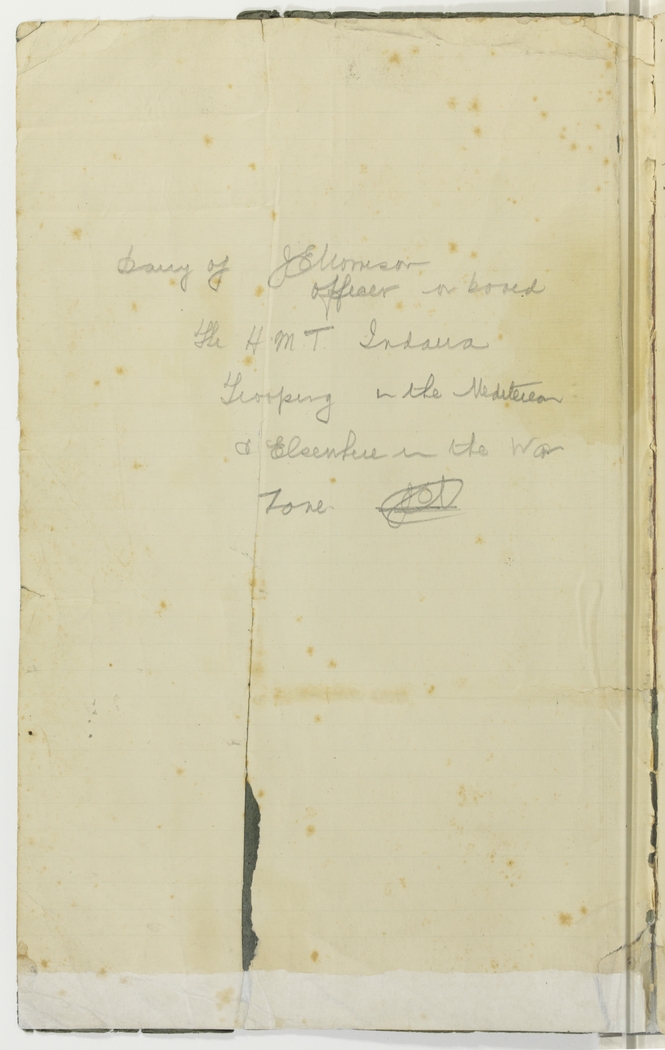 Diary of J E Morrison
Officer on board
The H M T Indarra
Trooping in the Mediterean
& Elsewhere in the War
Zone.